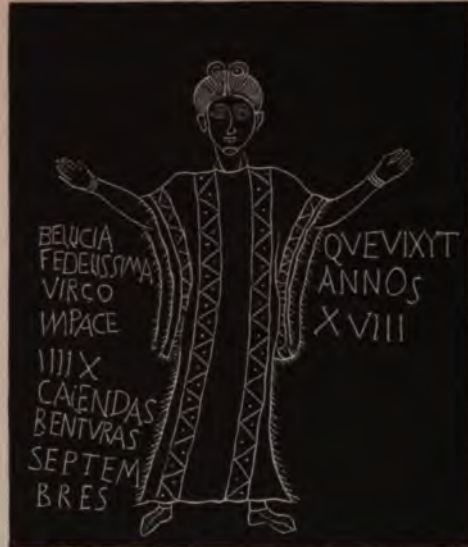 BELUCIA
FEDELISSIMA
VIRCO
IMPACE
IIIIX
CAIENDAS
BENTVRAS
SEPTEM
BRES
QVEVIXYT
ANNOS
XVIII